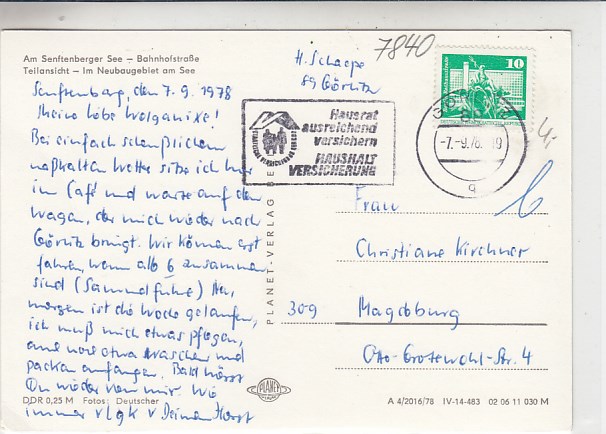 Am Senftenberger See — Bahnhofstraße
Teilansicht — Im Neubaugebiet am See
H. Schaepe
89 Görlitz
7840
10
Senftenberg, den 7. 9. 1978
Meine liebe
Bei einfach scheußlichem
naßkalten Wetter sitze ich hier
im Café und warte auf den
Wagen, der mich wieder nach
Görlitz bringt. Wir können erst
fahren, wenn alle 6 zusammen
sind (Sammelfuhre) Na,
morgen ist die Woche gelaufen,
ich muß mich etwas pflegen,
und etwas waschen und
packen anfangen. Bald hörst
Du wieder von mir. Wie
immer v l g k v Deinem Horst
Hausrat
ausreichend
versichern
HAUSHALT
VERSICHERUNG
-7.-9.78
PLANET-VERLAG BE
Frau
Christiane Kirchner
309 Magdeburg
Otto-Grotewohl-Str. 4
PLANET
DDR 0,25 M Fotos: Deutscher
A 4/2016/78 IV-14-483 02 06 11 030 M